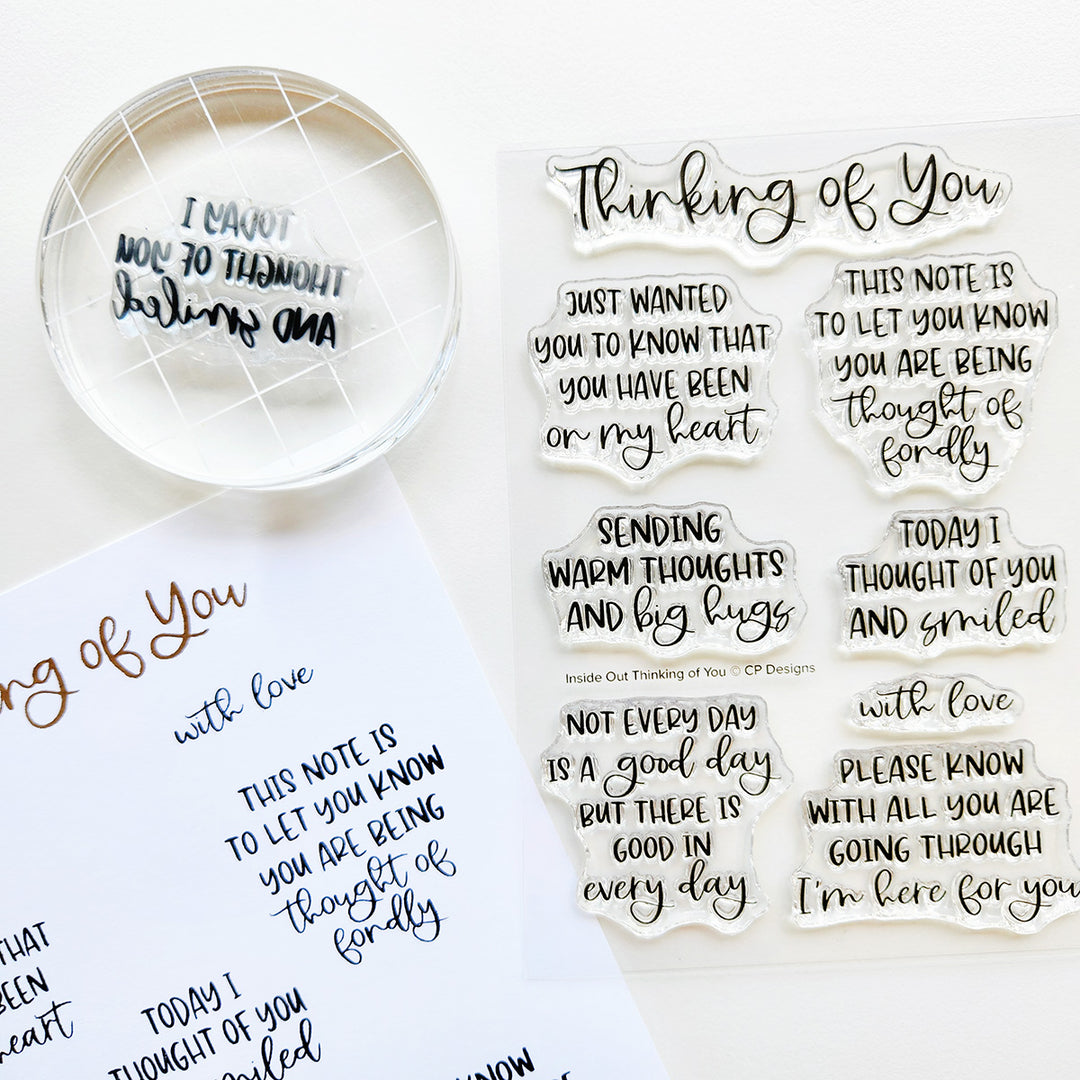 TODAY I
THOUGHT OF YOU
AND smiled
Thinking of You
JUST WANTED
YOU TO KNOW THAT
YOU HAVE BEEN
on my heart
THIS NOTE IS
TO LET YOU KNOW
YOU ARE BEING
thought of
fondly
SENDING
WARM THOUGHTS
AND big hugs
TODAY I
THOUGHT OF YOU
AND smiled
Inside Out Thinking of You © CP Designs
NOT EVERY DAY
IS A good day
BUT THERE IS
GOOD IN
every day
with love
PLEASE KNOW
WITH ALL YOU ARE
GOING THROUGH
I'm here for you
of You
with love
THIS NOTE IS
TO LET YOU KNOW
YOU ARE BEING
thought of
fondly
THAT
BEEN
heart
TODAY I
THOUGHT OF YOU
smiled
KNOW